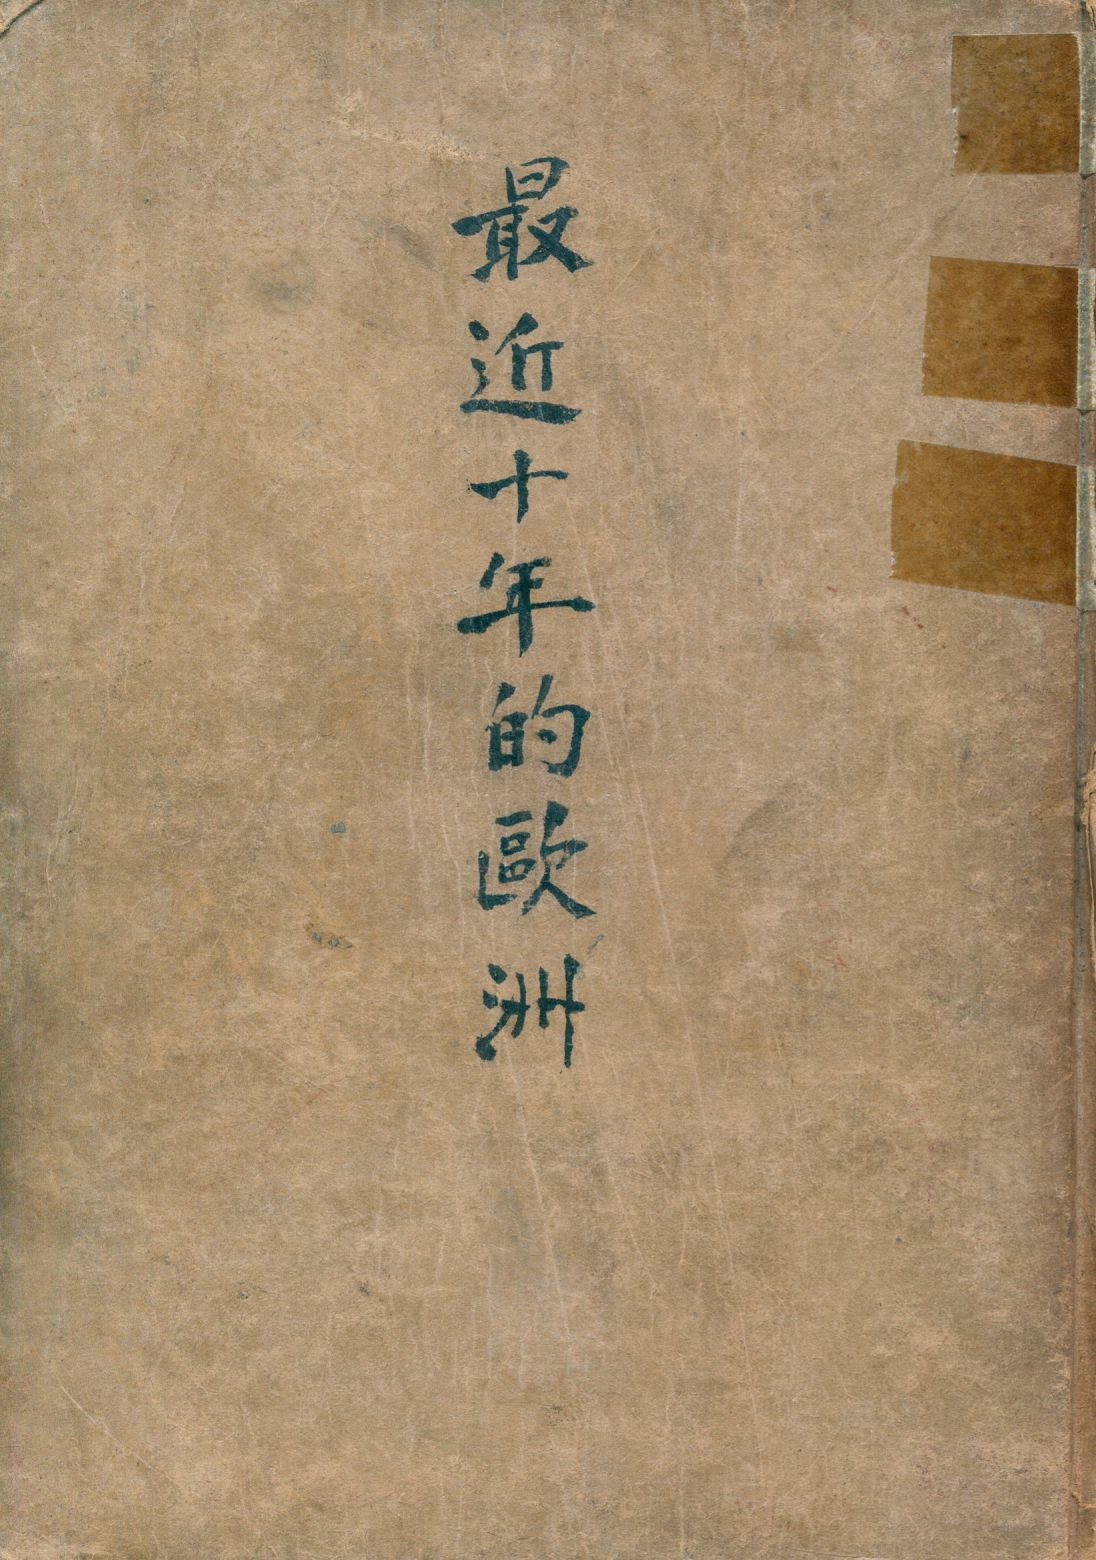 最近十年的歐洲